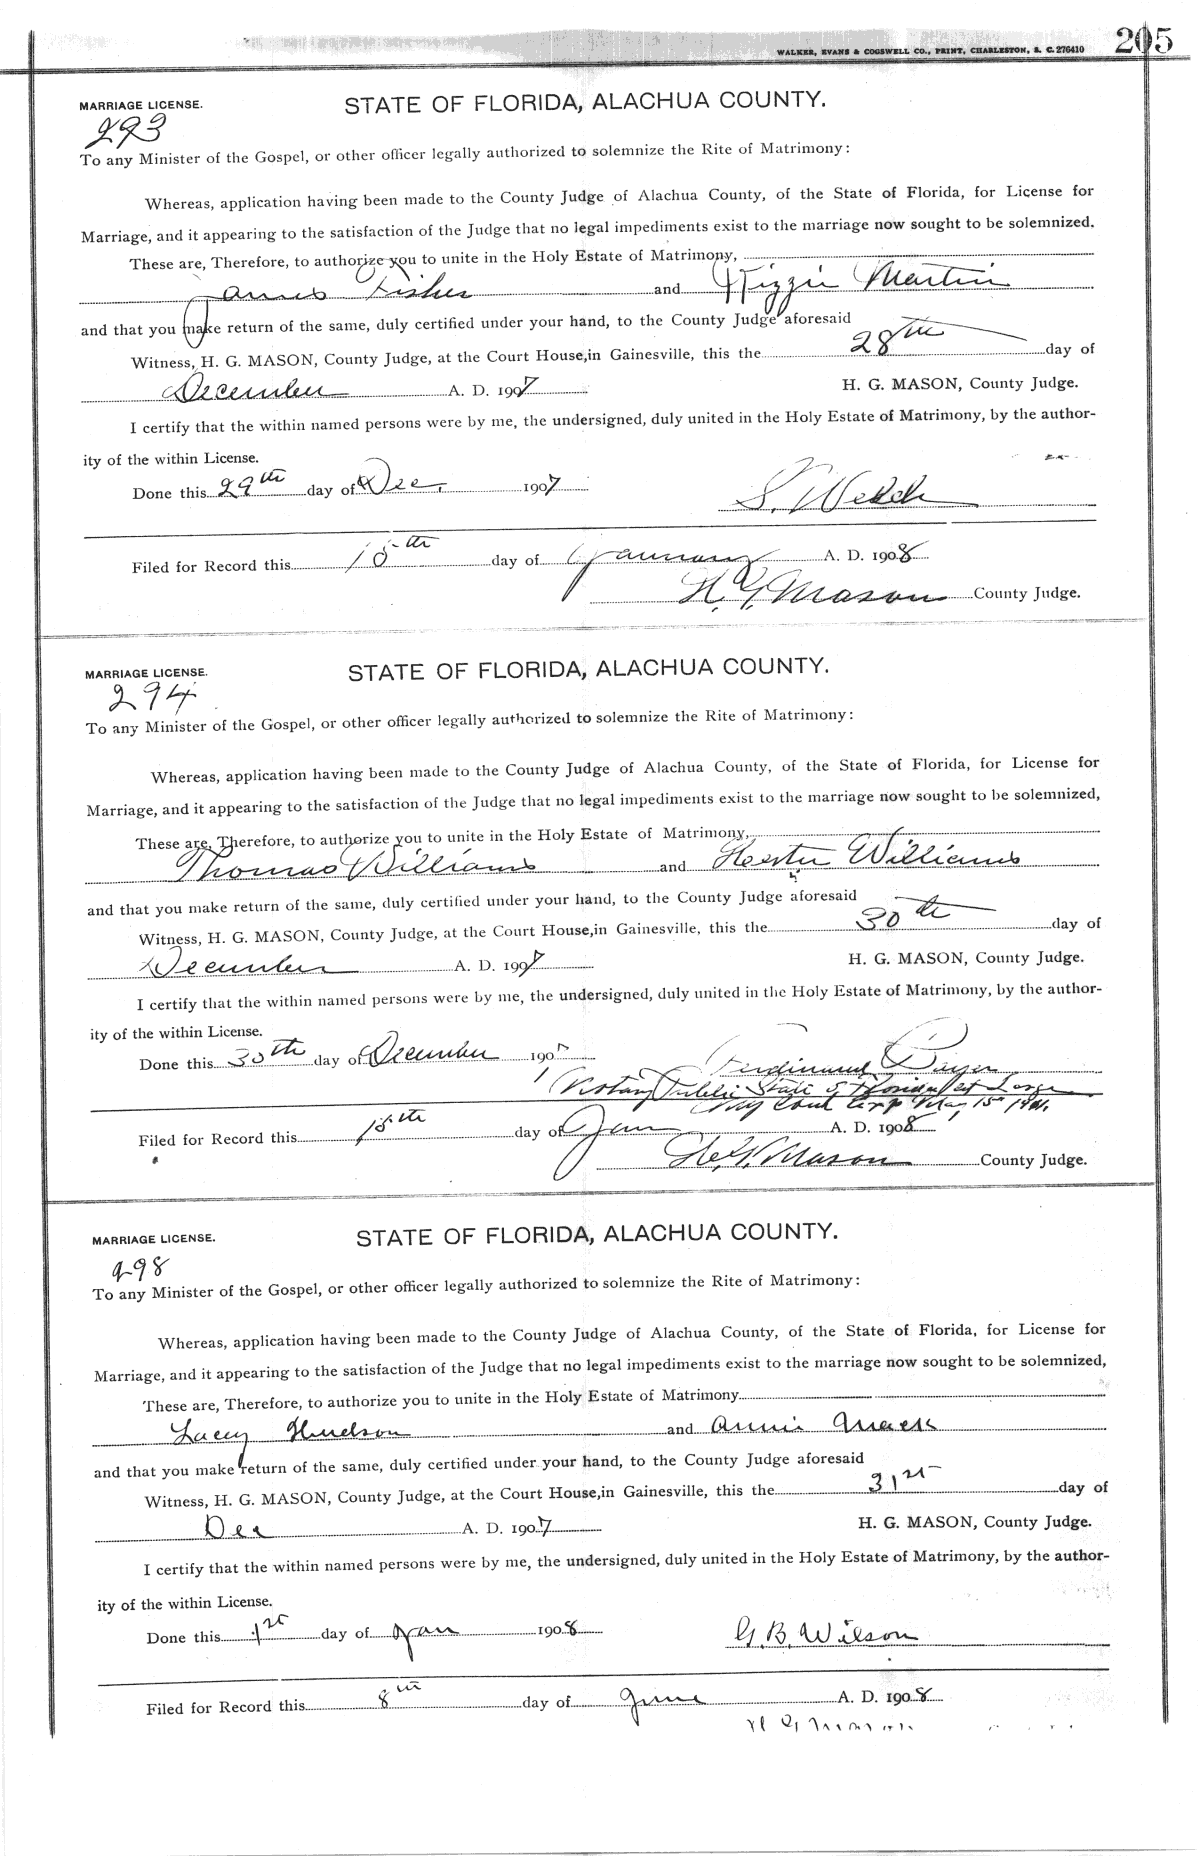 WALKER, EVANS & COGSWELL CO., PRINT, CHARLESTON, S. C. 276410 205
MARRIAGE LICENSE. STATE OF FLORIDA, ALACHUA COUNTY.
293
To any Minister of the Gospel, or other officer legally authorized to solemnize the Rite of Matrimony:
Whereas, application having been made to the County Judge of Alachua County, of the State of Florida, for License for
Marriage, and it appearing to the satisfaction of the Judge that no legal impediments exist to the marriage now sought to be solemnized.
These are, Therefore, to authorize you to unite in the Holy Estate of Matrimony,
James Fisher and Martin
and that you make return of the same, duly certified under your hand, to the County Judge aforesaid
Witness, H. G. MASON, County Judge, at the Court House, in Gainesville, this the 28th day of
December A. D. 1907 H. G. MASON, County Judge.
I certify that the within named persons were by me, the undersigned, duly united in the Holy Estate of Matrimony, by the author-
ity of the within License.
Done this 29th day of Dec, 1907 S. Welch
Filed for Record this day of January A. D. 1908
H. G. Mason County Judge.
MARRIAGE LICENSE. STATE OF FLORIDA, ALACHUA COUNTY.
294
To any Minister of the Gospel, or other officer legally authorized to solemnize the Rite of Matrimony:
Whereas, application having been made to the County Judge of Alachua County, of the State of Florida, for License for
Marriage, and it appearing to the satisfaction of the Judge that no legal impediments exist to the marriage now sought to be solemnized,
These are, Therefore, to authorize you to unite in the Holy Estate of Matrimony,
Thomas Williams and Hester Williams
and that you make return of the same, duly certified under your hand, to the County Judge aforesaid
Witness, H. G. MASON, County Judge, at the Court House, in Gainesville, this the 30th day of
December A. D. 1907 H. G. MASON, County Judge.
I certify that the within named persons were by me, the undersigned, duly united in the Holy Estate of Matrimony, by the author-
ity of the within License.
Done this 30th day of December 1907 Ferdinand Bayer
Notary Public State of Florida at Large
My Com Exp May 15
Filed for Record this 15th day of Jan A. D. 1908
H. G. Mason County Judge.
MARRIAGE LICENSE. STATE OF FLORIDA, ALACHUA COUNTY.
298
To any Minister of the Gospel, or other officer legally authorized to solemnize the Rite of Matrimony:
Whereas, application having been made to the County Judge of Alachua County, of the State of Florida, for License for
Marriage, and it appearing to the satisfaction of the Judge that no legal impediments exist to the marriage now sought to be solemnized,
These are, Therefore, to authorize you to unite in the Holy Estate of Matrimony
Lacey Hudson and Annie Mack
and that you make return of the same, duly certified under your hand, to the County Judge aforesaid
Witness, H. G. MASON, County Judge, at the Court House, in Gainesville, this the 31st day of
Dec A. D. 1907 H. G. MASON, County Judge.
I certify that the within named persons were by me, the undersigned, duly united in the Holy Estate of Matrimony, by the author-
ity of the within License.
Done this 1st day of Jan 1908 G. B. Wilson
Filed for Record this 8th day of June A. D. 1908
H G Mason